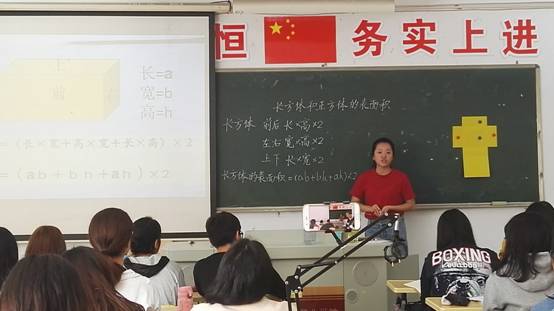 恒 务实上进
长=a
宽=b
高=h
=(长×宽+高×宽+长×高)×2
=(ab+bh+ah)×2
长方体和正方体的表面积
长方体 前后 长×高×2
左右 宽×高×2
上下 长×宽×2
长方体的表面积=(ab+bh+ah)×2
BOXING